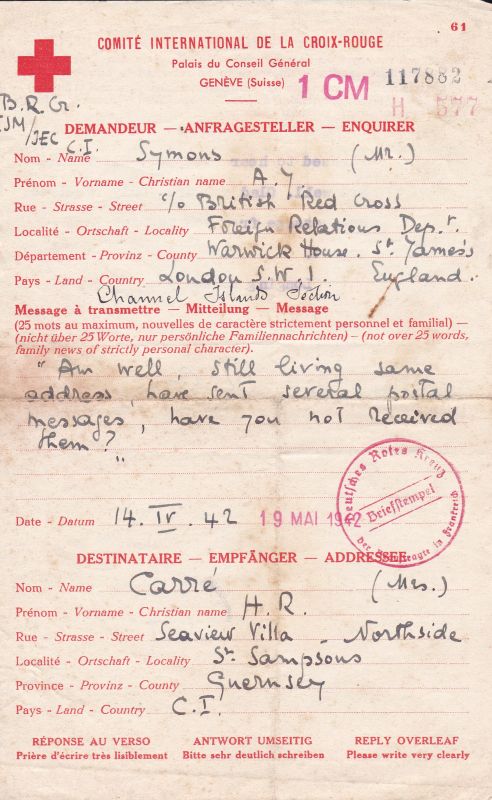 61
COMITÉ INTERNATIONAL DE LA CROIX-ROUGE
Palais du Conseil Général
GENÈVE (Suisse)
1 CM
117882
H 577
B.R.Cr.
ISM/JEC
C.I.
DEMANDEUR — ANFRAGESTELLER — ENQUIRER
Nom - Name Symons (Mr.)
Prénom - Vorname - Christian name A.J.
Rue - Strasse - Street c/o British Red Cross
Localité - Ortschaft - Locality Foreign Relations Dept.
Département - Provinz - County Warwick House. St James's
Pays - Land - Country London S.W.1. England.
Channel Islands Section
Message à transmettre — Mitteilung — Message
(25 mots au maximum, nouvelles de caractère strictement personnel et familial) —
(nicht über 25 Worte, nur persönliche Familiennachrichten) — (not over 25 words,
family news of strictly personal character).
"Am well, still living same
address, have sent several postal
messages, have you not received
them?"
Date - Datum 14. IV. 42
19 MAI 1942
Deutsches Rotes Kreuz
Briefstempel
Der Beauftragte in Frankreich
DESTINATAIRE — EMPFÄNGER — ADDRESSEE
Nom - Name Carré (Mrs.)
Prénom - Vorname - Christian name H.R.
Rue - Strasse - Street Seaview Villa - Northside
Localité - Ortschaft - Locality St. Sampsons
Province - Provinz - County Guernsey
Pays - Land - Country C.I.
RÉPONSE AU VERSO ANTWORT UMSEITIG REPLY OVERLEAF
Prière d'écrire très lisiblement Bitte sehr deutlich schreiben Please write very clearly